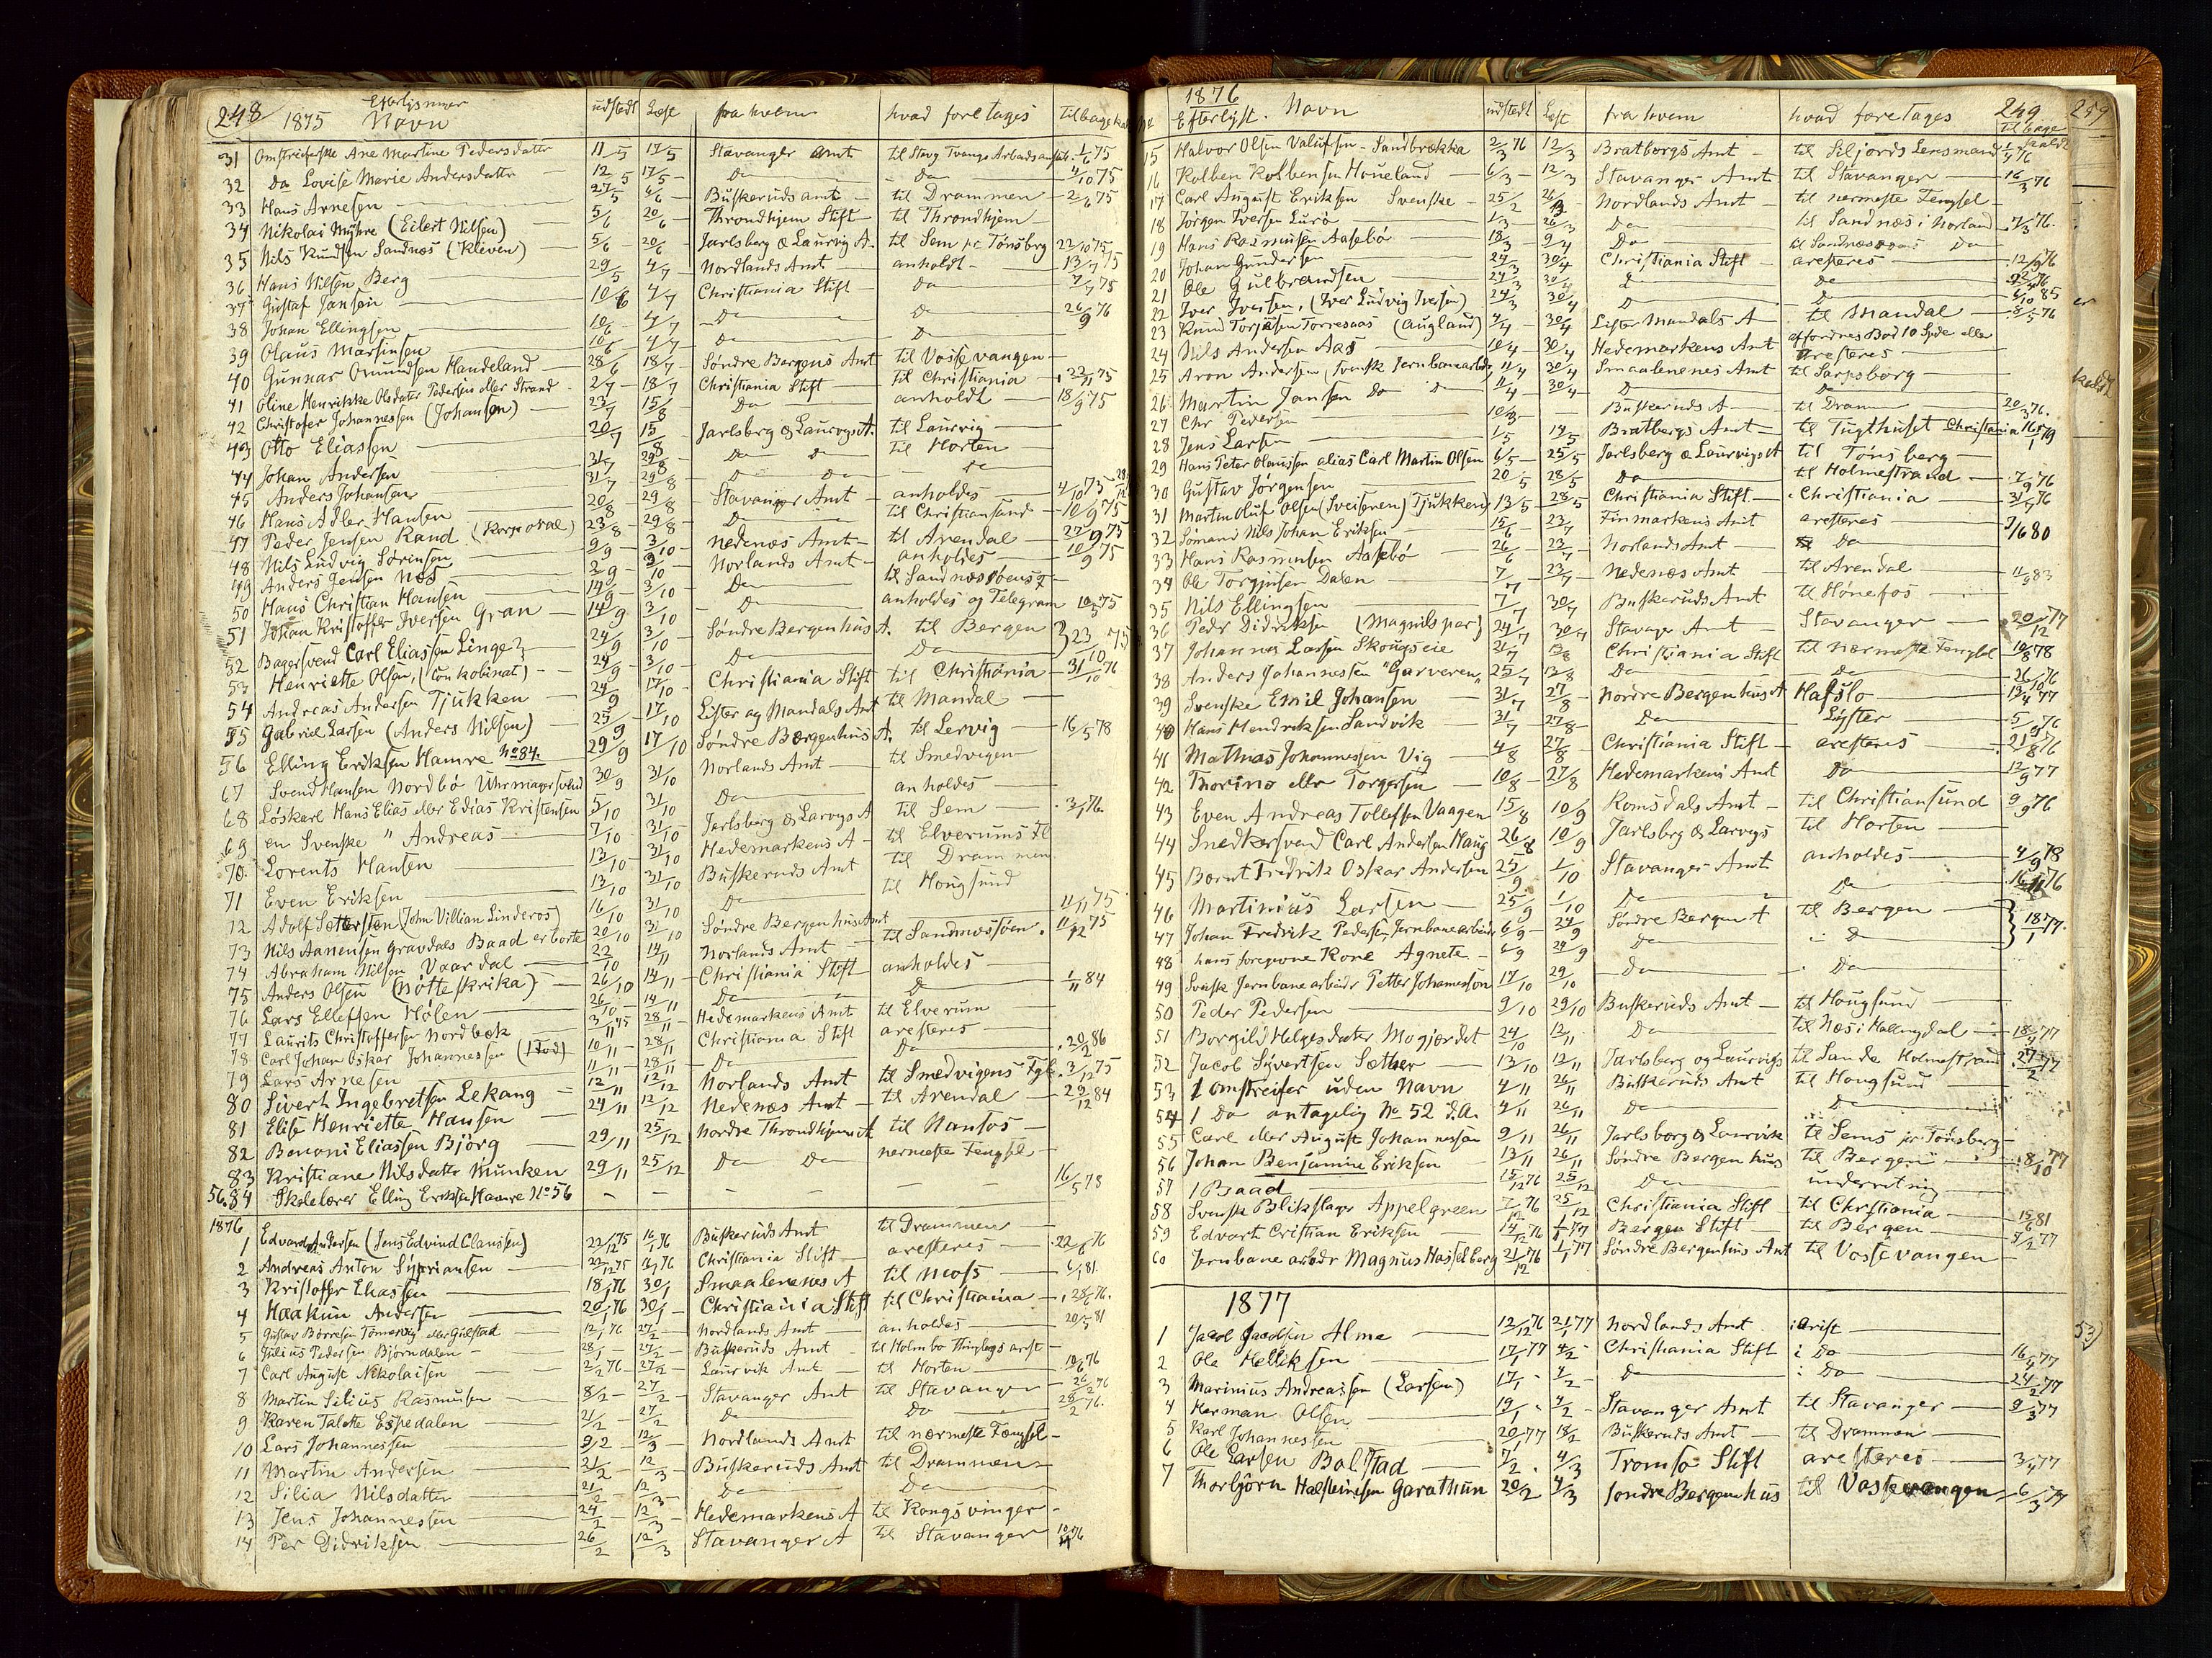 248 1875 Efterlysninger Navn udstedt Læst fra hvem hvad foretages Tilbagekal
31 Omstreiferske Ane Martine Pedersdatter 11/5 17/5 Stavanger Amt til Stavg Tvangs Arbeidsanstalt 1/6 75
32 Do Lovise Marie Andersdatter 12/5 17/5 Do Do 4/10 75
33 Hans Arnesen 27/5 6/6 Buskeruds amt til Drammen 2/6 75
34 Nikolai Myhre (Eilert Nilsen) 5/6 20/6 Throndhjem Stift til Throndhjem
35 Nils Knudsen Sandnæs (Kleven) 5/6 20/6 Jarlsberg & Laurvig A. til Sem pr Tønsbrg 22/10 75
36 Hans Nilsen Berg 29/5 4/7 Nordlands Amt anholdt 13/7 75
37 Gustaf Jansen 10/6 4/7 Christiania Stift Do 7/7 75
38 Johan Ellingsen 10/6 4/7 Do Do 26/9 76
39 Olaus Marsinsen 10/6 4/7 Do Do
40 Gunnar Omundsen Handeland 28/6 18/7 Søndre Bergens Amt til Vossevangen
41 Oline Henrikke Olsdater Pedersen eller Strand 2/7 18/7 Christiania Stift til Christiania 22/11 75
42 Christofer Johannessen (Johansen) 23/7 15/8 Do anholdt 18/9 75
43 Otto Eliassen 20/7 15/8 Jarlsberg & Laurvigs A. til Laurvig
44 Johan Andersen 31/7 29/8 Do Do til Horten
45 Anders Johansen 31/7 29/8 Do Do Do
46 Hans Adler Hansen 20/8 29/8 Stavanger Amt anholdes 4/10 75
47 Peder Jensen Rand (Korporal) 23/8 29/8 Do til Christiansand 10/9 75
48 Nils Ludvig Sørensen 9/9 3/10 Nedenæs Amt til Arendal 22/9 75
49 Anders Jensen Næs 2/9 3/10 Norlands Amt anholdes 10/9 75
50 Hans Christian Hansen 14/9 3/10 Do til Sandnæssøens F
51 Johan Kristoffer Iversen Gran 14/9 3/10 Do anholdes og Telegram 10/5 75
52 Bagersvend Carl Eliassen Linge? 24/9 3/10 Søndre Bergenhus A. til Bergen 23/10 75
53 Henriette Olsen, (Konkobinat) 24/9 3/10 Do Do
54 Andreas Andersen Tjukken 24/9 17/10 Christiania Stift til Christiania 31/10 76
55 Gabriel Larsen (Anders Nilsen) 25/9 17/10 Lister og Mandals Amt til Mandal
56 Elling Eriksen Hamre No 84. 29/9 17/10 Søndre Bergenhus A. til Lervig 16/5 78
67 Svend Hansen Nordbø Uhrmagersvend 30/9 31/10 Norlands Amt til Smedvigen
68 Løskarl Hans Elias eller Edias Kristensen 5/10 31/10 Do anholdes
69 en Svenske " Andreas 7/10 31/10 Jarlsberg & Larvigs A til Sem 3/1 76.
70. Lorents Hansen 13/10 31/10 Hedemarkens A til Elverums Fl
71 Even Eriksen 13/10 31/10 Buskeruds Amt til Drammen
72 Adolf Settersten (John Villian Linderos) 16/10 31/10 Do til Hougsund
73 Nils Aanensen Gravdals Baad er borte 20/10 31/10 Søndre Bergenhus Amt 11/11 75
74 Abraham Nilsen Vaardal 22/10 14/11 Norlands Amt til Sandnæssøen 11/12 75
75 Anders Olsen (Nøtteskrika) 26/10 14/11 Christiania Stift anholdes
76 Lars Ellefsen Hølen 26/10 14/11 Do Do 1/11 84
77 Laurits Christoffersen Nordbæk 3/11 75 28/11 Hedemarkens Amt til Elverum
78 Carl Johan Oskar Johannessen (Død) 10/11 28/11 Christiania Stift aresteres
79 Lars Arnesen 11/11 28/11 Do Do 20/2 86
80 Sivert Ingebretsen Lekang 12/11 12/12 Norlands Amt til Smedvigens Fgl 3/12 75
81 Elise Henriette Hansen 24/11 12/12 Nedenæs Amt til Arendal 29/12 84
82 Benoni Eliassen Bjørg 29/11 25/12 Nordre Throndhjems A til Namsos
83 Kristiane Nilsdater Munken 29/11 25/12 Do Do nermeste Fengsel
56.84 Skolelærer Elling Eriksen Hamre No 56 16/5 78
1876
1 Edvard Andersen (Jens Edvind Claussen) 22/12 75 16/1 76 Buskeruds Amt til Drammen
2 Andreas Anton Syprian sen 22/12 75 16/1 76 Christiania Stift aresteres 22/6 76
3 Kristoffer Eliassen 18/1 76 30/1 Smaalenenes A til Moss 6/1 81
4 Haakun Andersen 20/1 76 30/1 Christiania Stift til Christiania 28/6 76.
5 Gustav Børresen Tømervig eller Gulstad 12/1 76 27/2 Nordlands Amt anholdes 20/5 81
6 Julius Pedersen Bjørndalen 28/1 27/2 Buskeruds Amt til Holmbo Thinglags arest
7 Carl August Nikolaisen 2/2 76 27/2 Laurvik Amt til Horten 10/6 76
8 Martin Silius Rasmusen 8/2 27/2 Stavanger Amt til Stavanger 26/2 76
9 Karen Talette Espedalen 21/2 27/2 Do Do 28/2 76.
10 Lars Johannessen 9/2 12/3 Nordlands Amt til nærmeste Fængsel
11 Martin Andersen 21/2 12/3 Buskeruds Amt til Drammen
12 Silia Nilsdatter 21/2 12/3 Do Do
13 Jens Johannessen 24/2 12/3 Hedemarkens A til Kongsvinger
14 Per Didriksen 26/2 12/3 Stavanger A til Stavanger 10/4 76
1876 Efterlyst. Navn udstedt Læst fra hvem hvad foretages 249 tilbage kaldt
15 Halvor Olsen Valufsen - Sandbrækka 2/3 76 12/3 Bratbergs Amt til Siljords Lensmand 1/4 76
16 Kolben Kolbensen Høneland 6/3 12/3 Stavanger Amt til Stavanger 16/3 76
17 Carl August Eriksen Svenske 25/2 26/3 Nordlands Amt til nermeste Fengsel
18 Jørgen Iversen Lurø 1/3 26/3 Do til Sandnæs i Norland 7/3 76.
19 Hans Rasmusen Aasebø 18/3 9/4 Do til Sandnæs Do
20 Johan Gundersen 24/3 30/4 Christiania Stift aresteres 12/9 76
21 Ole Gulbrandsen 24/3 30/4 Do Do
22 Iver Iversen, (Iver Ludvig Iversen) 24/3 30/4 Do Do 6/10 85
23 Knud Torjusen Torresaas (Augland) 4/4 30/4 Lister Mandals A til Mandal 8/5 76
24 Nils Andersen Aas 10/4 30/4 Hedemarkens Amt affordres Bod 10 Spde eller aresteres
25 Aron Andersen (svensk Jernbanearbeidr) 11/4 30/4 Smaalenenes Amt til Sarpsborg
26 Martin Jansen Do Do 11/4 30/4 Do Do
27 Chr Pedersen 10/3 Buskeruds A til Dram 20/3 76.
28 Jens Larsen 1/5 14/5 Bratbergs Amt til Tugthuset Christiania 16/1 79
29 Hans Peter Olaussen alias Carl Martin Olsen 6/5 25/5 Jarlsberg & Laurvigs A til Tønsberg
30 Gustav Jørgensen 20/5 28/5 Do til Holmestrand 7/9 76
31 Martin Oluf Olsen (Sveiseren) Tjukken 13/5 28/5 Christiania Stift Christiania 31/7 76
32 Sømand Nils Johan Eriksen 15/6 23/7 Finmarkens Amt aresteres 7/6 80
33 Hans Rasmusen Aasebø 26/6 23/7 Norlands Amt Do
34 Ole Torgjusen Dalen 7/7 23/7 Nedenæs Amt til Arendal 11/9 83
35 Nils Ellingsen 7/7 30/7 Buskeruds Amt til Hønefos
36 Pedr Didriksen (Magnilspar) 24/7 30/7 Stavager Amt Stavanger 20/12 77
37 Johannes Larsen Skougseie 21/7 13/8 Christiania Stift til nærmeste Fengsel 10/8 78
38 Anders Johannessen "Garveren" 25/7 13/8 Do Do 26/10 76
39 Svenske Emil Johansen 31/7 27/8 Nordre Bergenhus A Hafslo 12/4 77
40 Hans Hendriksen Sandvik 31/7 27/8 Do Lyster 5/9 76
41 Mathias Johannessen Vig 4/8 27/8 Christiania Stift aresteres 21/8 76
42 Thorino eller Torgersen 10/8 27/8 Hedemarkens Amt Do 12/9 77
43 Even Andreas Tollefsen Vaagen 15/8 10/9 Romsdals Amt til Christiansund 9/9 76
44 Snedkersvend Carl Andersen Haug 26/8 10/9 Jarlsbrg & Larvigs til Horten
45 Bernt Fredrik Oskar Andersen 25/9 1/10 Stavanger Amt anholdes 4/9 78
46 Martinius Larsen 25/9 1/10 Do Do 76
47 Johan Fredrik Pedersen, Jernbanearbeidr 6/9 24/9 Søndre Bergen A til Bergen 18/1 77.
48 hans foregivne Kone Agnete 6/9 24/9 Do Do
49 Svensk Jernbanearbeidr Petter Johanneson 17/10 29/10 Do Do
50 Peder Pedersen 9/10 29/10 Buskeruds Amt til Hougsund
51 Borgild Helgesdater Mogjordet 24/10 12/11 Do til Næs i Hallingdal 18/4 77
52 Jacob Syvertsen Sæther 13/10 12/11 Jarlsberg og Laurvigs til Sande Holmestrand 27/2 77
53 1 Omstreifer uden Navn 4/11 26/11 Buskeruds Amt til Hougsund
54 1 Do antagelig No 52 d.A. 4/11 26/11 Do Do
55 Carl eller August Johannessen 9/11 26/11 Jarlsberg & Laurvik til Sems pr Tønsberg
56 Johan Benjamine Eriksen 13/11 26/11 Søndre Bergenhus til Bergen 8/10 77
57 1 Baad 15/12 76 25/12 Do underretning
58 Svensk Blikslager Appelgreen 7/12 76 25/12 Christiania Stift til Christiania 15/6 81
59 Edvart Cristian Eriksen 14/12 76 1/1 77 Bergen Stift til Bergen 5/2 77
60 Jernbane arbdr Magnus Hasselberg 21/12 76 1/1 77 Søndre Bergenhus Amt til Vossevangen
1877
1 Jacob Jacobsen Alme 12/12 76 21/1 77 Nordlands Amt i arist
2 Ole Helliksen 17/1 77 4/2 Christiania Stift i Do 16/4 77
3 Marinius Andreassen (Larsen) 17/1 4/2 Do Do 24/2 77
4 Herman Olsen 19/1 4/2 Stavanger Amt til Stavanger 9/3 77
5 Karl Johannessen 20/1 77 18/2 Buskeruds Amt til Drammen
6 Ole Larsen Balstad 7/2 4/3 Tromsø Stift aresteres 3/4 77
7 Thorbjørn Halsteinsen Garathun 20/2 4/3 Søndre Bergenhus til Vossevangen 6/3 77
259
53)